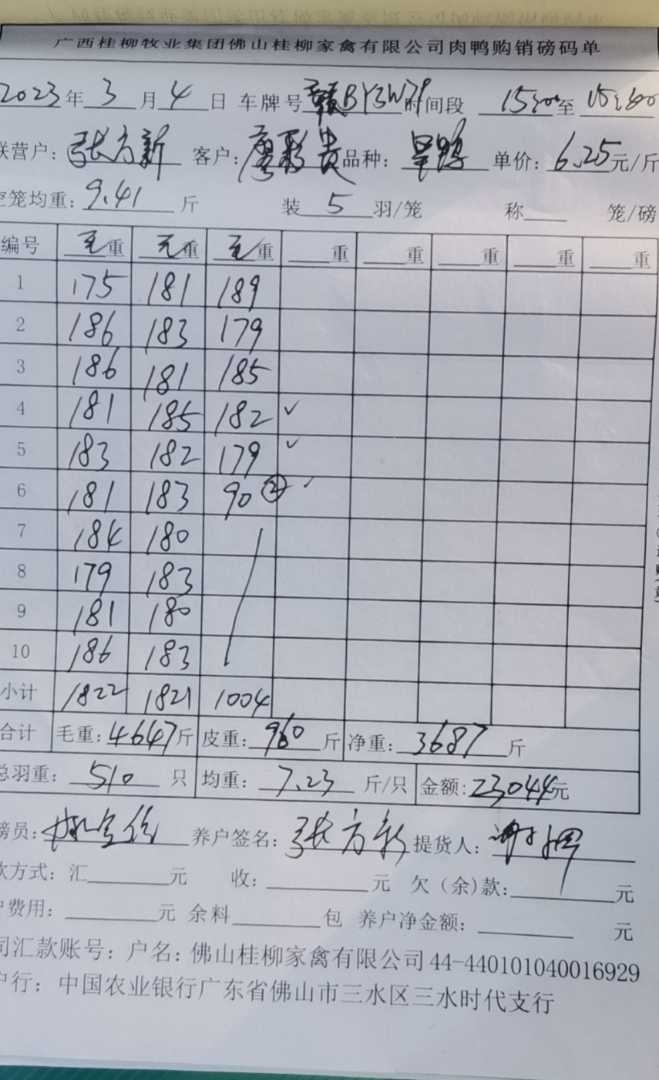 广西桂柳牧业集团佛山桂柳家禽有限公司肉鸭购销磅码单
2023年3月4日 车牌号 时间段 15:00至
联营户: 张方新 客户: 廖彩贵 品种: 单价: 6.25元/斤
空笼均重: 9.41斤 装5羽/笼 称 笼/磅
编号 毛重 毛重 毛重 重 重 重 重 重
1 175 181 189
2 186 183 179
3 186 181 185
4 181 185 182 ✓
5 183 182 179 ✓
6 181 183 90 ② ✓
7 184 180
8 179 183
9 181 180
10 186 183
小计 1822 1821 1004
合计 毛重: 4647斤 皮重: 960斤 净重: 3687斤
总羽重: 510只 均重: 7.23斤/只 金额: 23044元
磅员: 养户签名: 张方新 提货人:
款方式: 汇 元 收: 元 欠(余)款: 元
户费用: 元 余料 包 养户净金额: 元
司汇款账号: 户名: 佛山桂柳家禽有限公司 44-440101040016929
户行: 中国农业银行广东省佛山市三水区三水时代支行